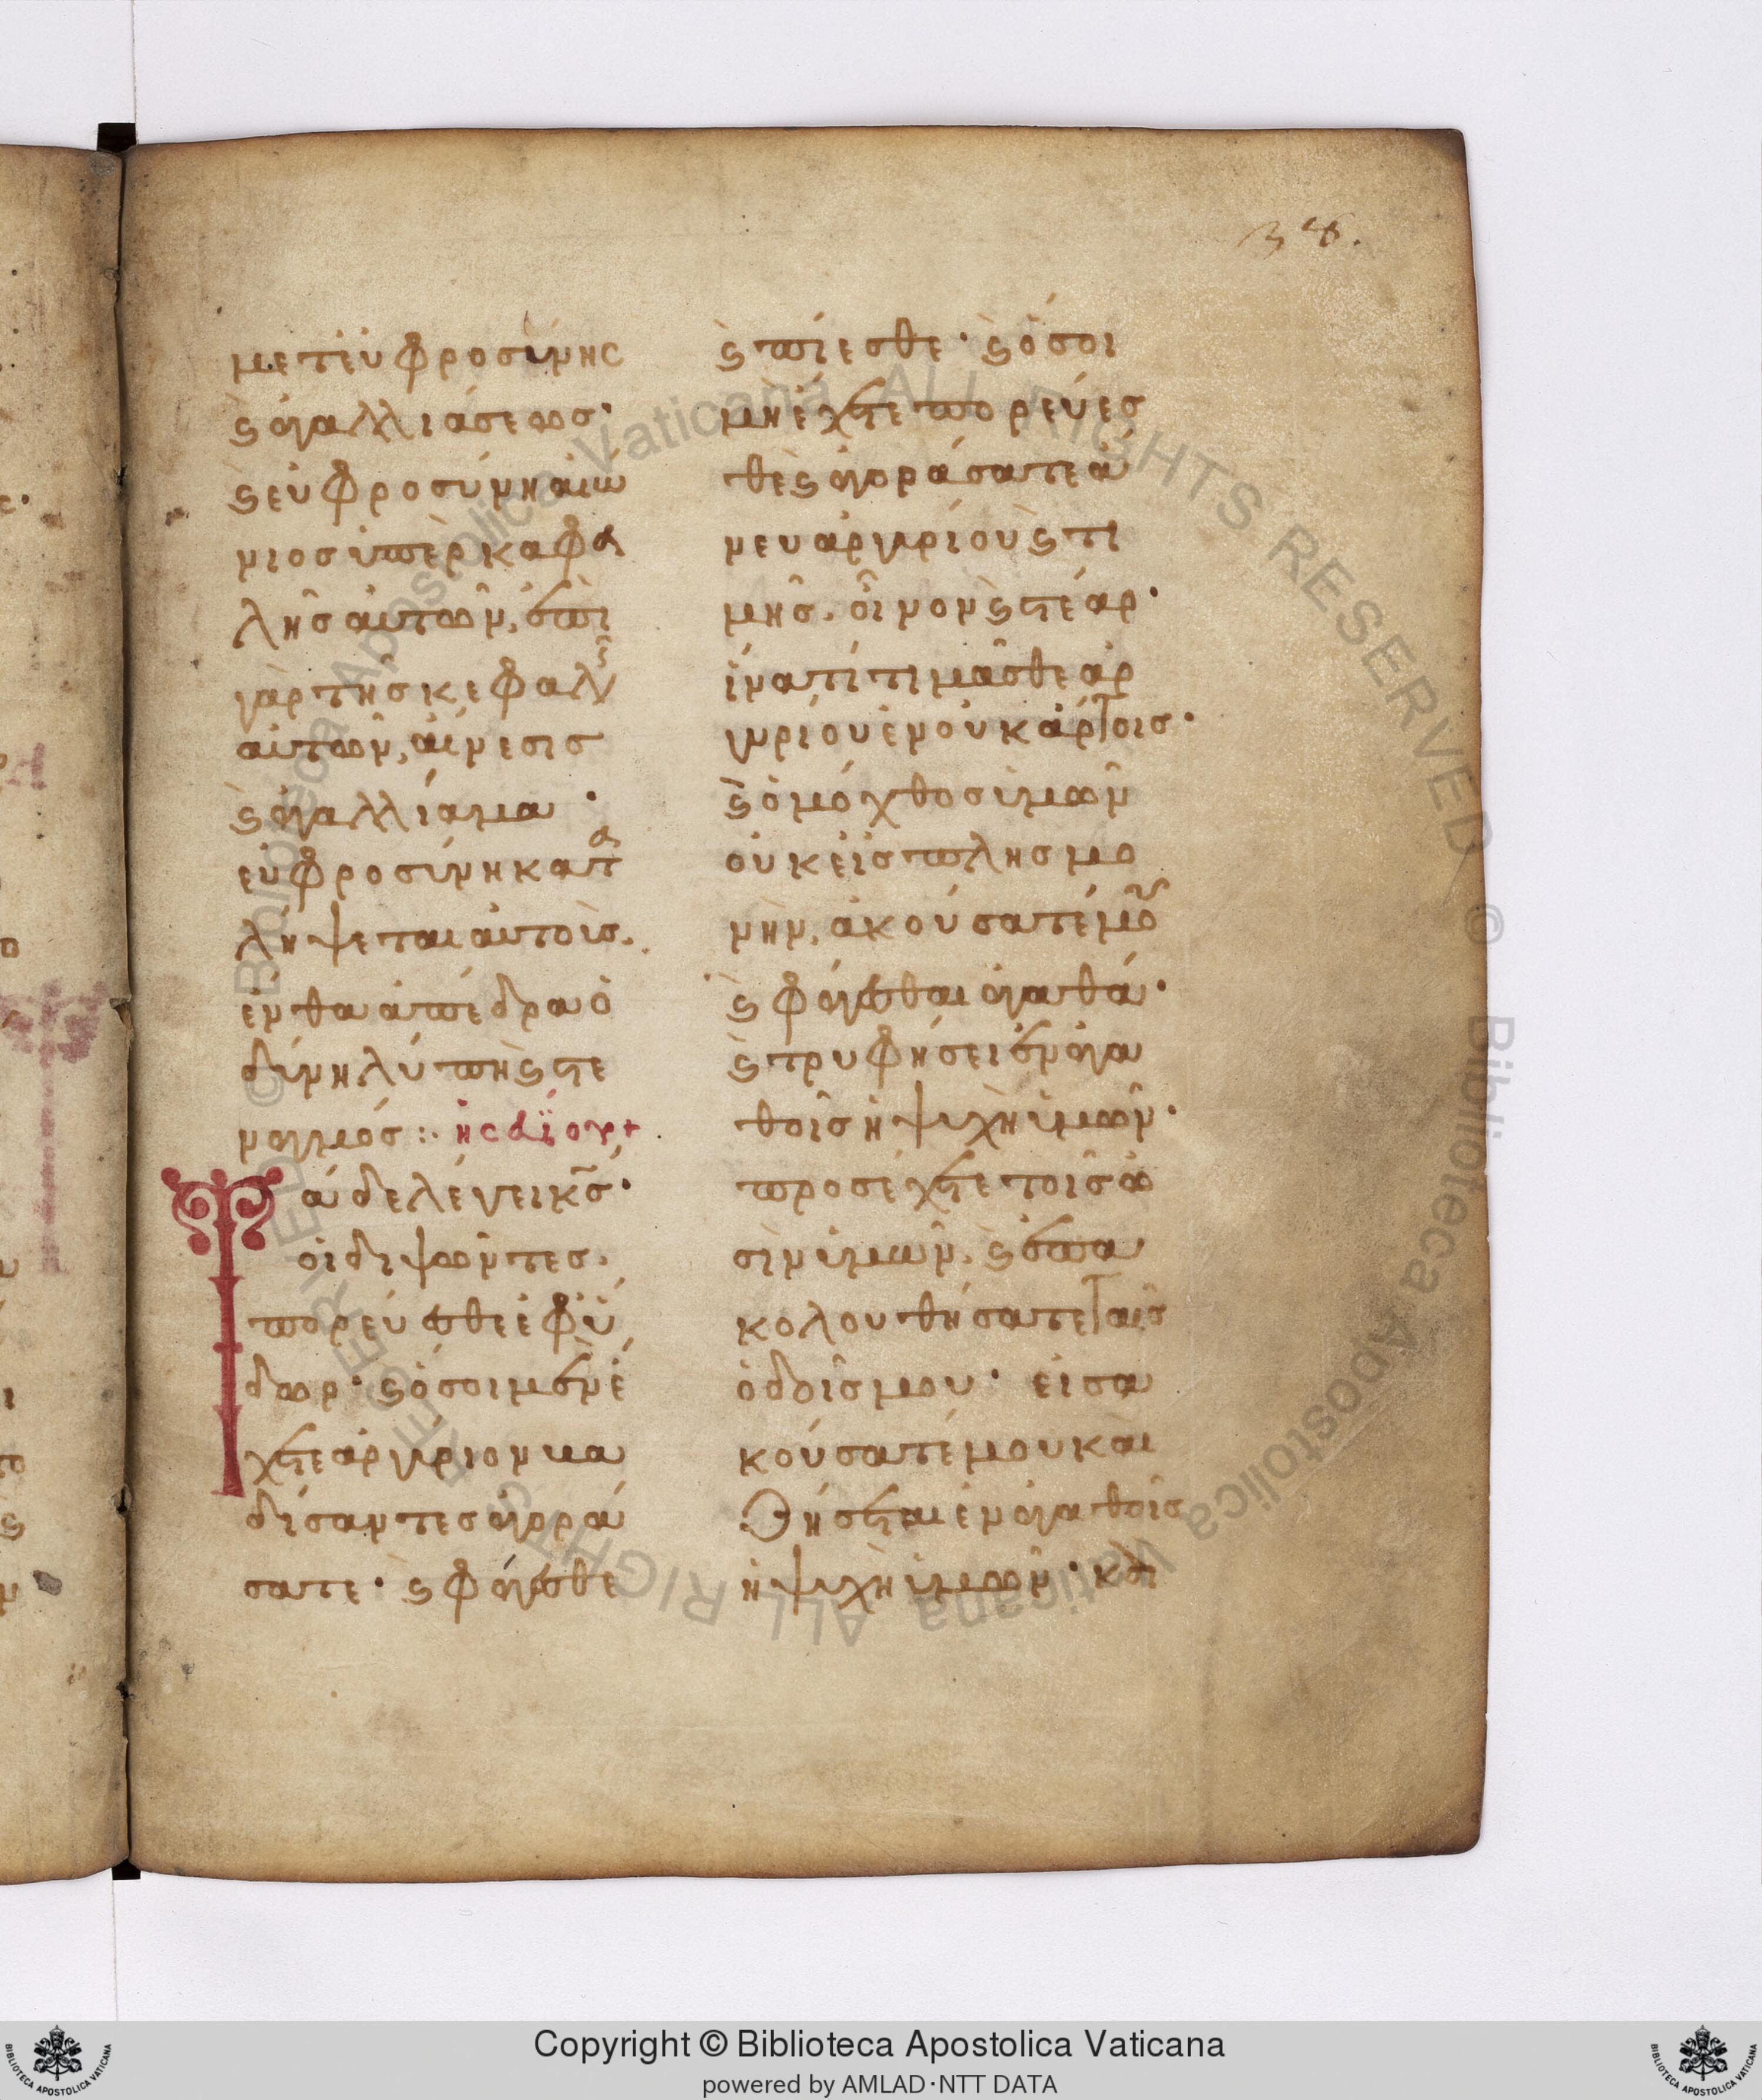 38.
μετ' ἐυφροσύνης
ϗ ἀγαλλιάσεως·
ϗ ἐυφροσύνη αἰώ
νιος ὑπὲρ καφα
λῆς ἀυτῶν, ἐπὶ
γὰρ τῆς κεφαλῆς
αὐτῶν, αἴνεσις
ϗ ἀγαλλίαμα·
εὐφροσύνη κατα
λήψεται αὐτοὺς.
ἔνθα ἀπέδρα ὁ
δύνη λύπη ϗ στε
ναγμός:· ἡσαΐου +
Τάδε λέγει κς·
οἱ διψῶντες.
πορεύεσθε ἐφ ὕ
δωρ· ϗ ὅσοι μὲν ἔ
χετε ἀργύριον κα
δίσαντες ἀγορά
σατε· ϗ φάγεσθε
ϗ πίεσθε· ϗ ὅσοι
μὴ ἔχετε πορεύεσ
θε ϗ ἀγοράσατε ἄ
νευ ἀργυρίου ϗ τι
μῆς. οἶνον ϗ στέαρ·
ἵνα τί τιμᾶσθε ἀρ
γυρίου ἐν οὐκ ἄρτοις·
ϗ ὁ μόχθος ὑμῶν
οὐκ εἰς πλησμο
νὴν, ἀκούσατέ μου
ϗ φάγεσθαι ἀγαθά·
ϗ τρυφήσει ἐν ἀγα
θοῖς ἡ ψυχὴ ὑμῶν·
προσέχετε τοῖς ὠ
σὶν ὑμῶν, ϗ ἐπα
κολουθήσατε ταῖς
ὁδοῖς μου· εἰσα
κούσατέ μου καὶ
ζήσεται ἐν ἀγαθοῖς
ἡ ψυχὴ ὑμῶν· καὶ
Copyright © Biblioteca Apostolica Vaticana
powered by AMLAD·NTT DATA